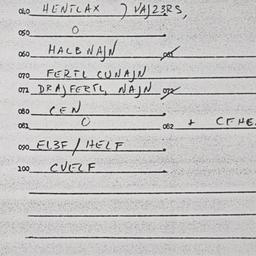 010 HENTLAX ) VAJ23RS,
050 0
060 HALBNAJN 061
070 FERTL CUNAJN
071 DRAJFERTL NAJN 072
080 CEN
081 0 082 + CFHE
090 EL3F / HELF
100 CVELF